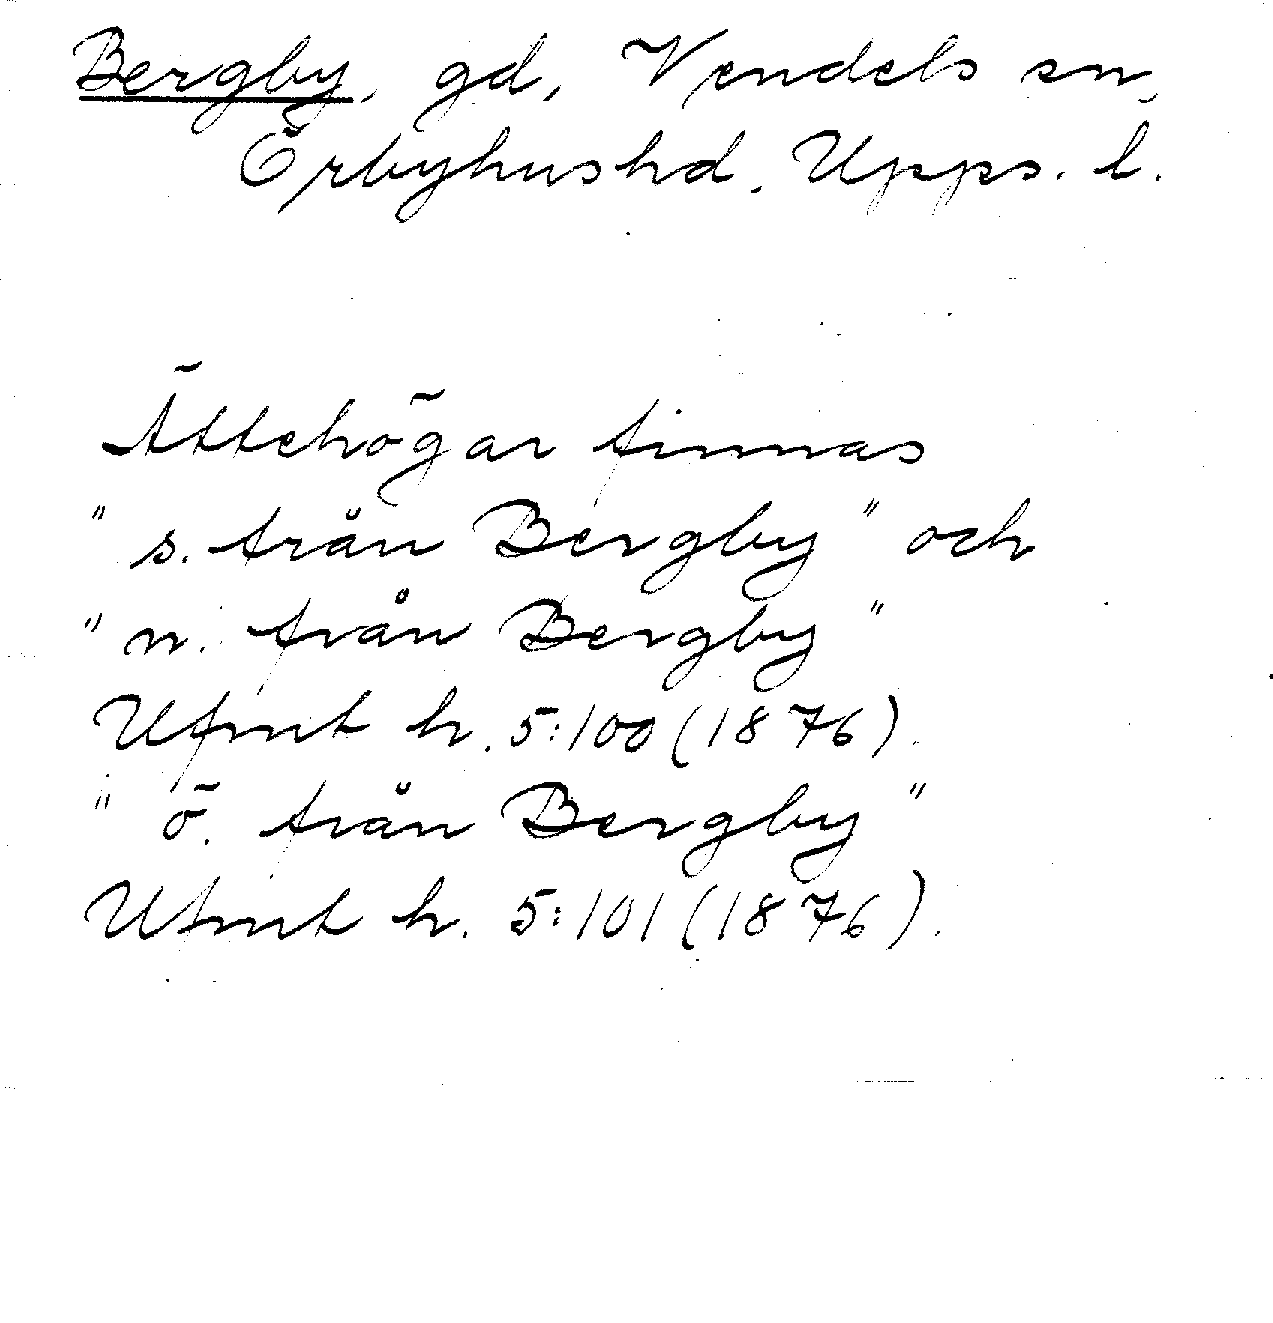 Bergby, gd, Vendels sn,
Örbyhus hd. Upps. l.
Ättehögar finnas
" s. från Bergby" och
" n. från Bergby"
Ufmt h. 5:100 (1876).
" ö. från Bergby"
Ufmt h. 5:101 (1876).